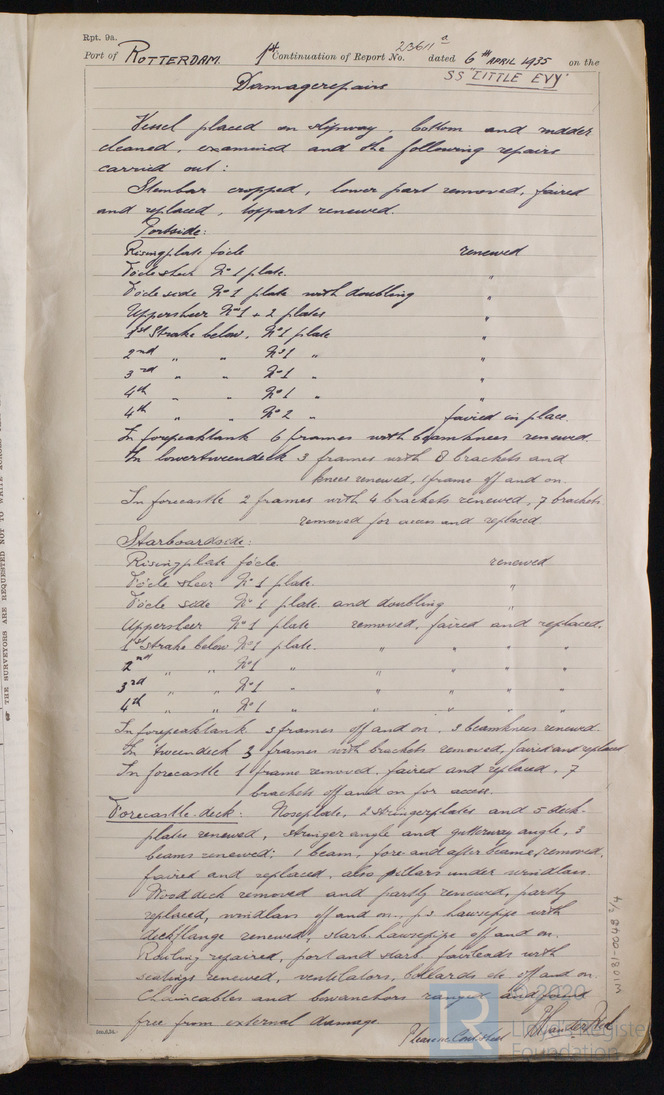 Rpt. 9a.
Port of ROTTERDAM. 1st Continuation of Report No. 23611a dated 6th APRIL 1935 on the
SS "LITTLE EVY"
Damagerepairs
Vessel placed on slipway, bottom and rudder
cleaned, examined and the following repairs
carried out:
Stembar cropped, lower part removed, faired
and replaced, toppart renewed.
Portside:
Risingplate focle renewed
Focle sheer No 1 plate. "
Focle side No 1 plate with doubling "
Uppersheer No 1 + 2 plates "
1st Strake below, No 1 plate "
2nd " " No 1 " "
3rd " " No 1 " "
4th " " No 1 " "
4th " " No 2 " faired in place.
In forepeaktank 6 frames with beamknees renewed.
In lowertweendeck 3 frames with 8 brackets and
knees renewed, 1 frame off and on.
In forecastle 2 frames with 4 brackets renewed, 7 brackets
removed for acces and replaced
Starboardside:
Risingplate focle. renewed
Focle sheer No 1 plate. "
Focle side No 1 plate and doubling "
Uppersheer No 1 plate removed, faired and replaced.
1st strake below No 1 plate. " " " "
2nd " " No 1 " " " " "
3rd " " No 1 " " " " "
4th " " No 1 " " " " "
In forepeaktank 3 frames off and on, 3 beamknees renewed.
In 'tweendeck 3 frames with brackets removed, faired and replaced
In forecastle 1 frame removed, faired and replaced, 7
brackets off and on for access.
Forecastle-deck: Noseplate, 2 stringerplates and 5 deck-
plates renewed, stringer angle and gutterway angle, 3
beams renewed; 1 beam, fore-and after beams, removed,
faired and replaced, also pillars under windlass.
Wooddeck removed and partly renewed, partly
replaced, windlass off and on, p.s hawsepipe with
deckflange renewed, starb. hawsepipe off and on.
Railing repaired, port and starb. fairleads with
seatings renewed, ventilators, bollards etc off and on.
Chaincables and boweranchors ranged and found
free from external damage.
Please see Cont. sheet
W1081-0048 2/4
© 2020
LR
Lloyd's Register
Foundation
THE SURVEYORS ARE REQUESTED NOT TO WRITE ACROSS